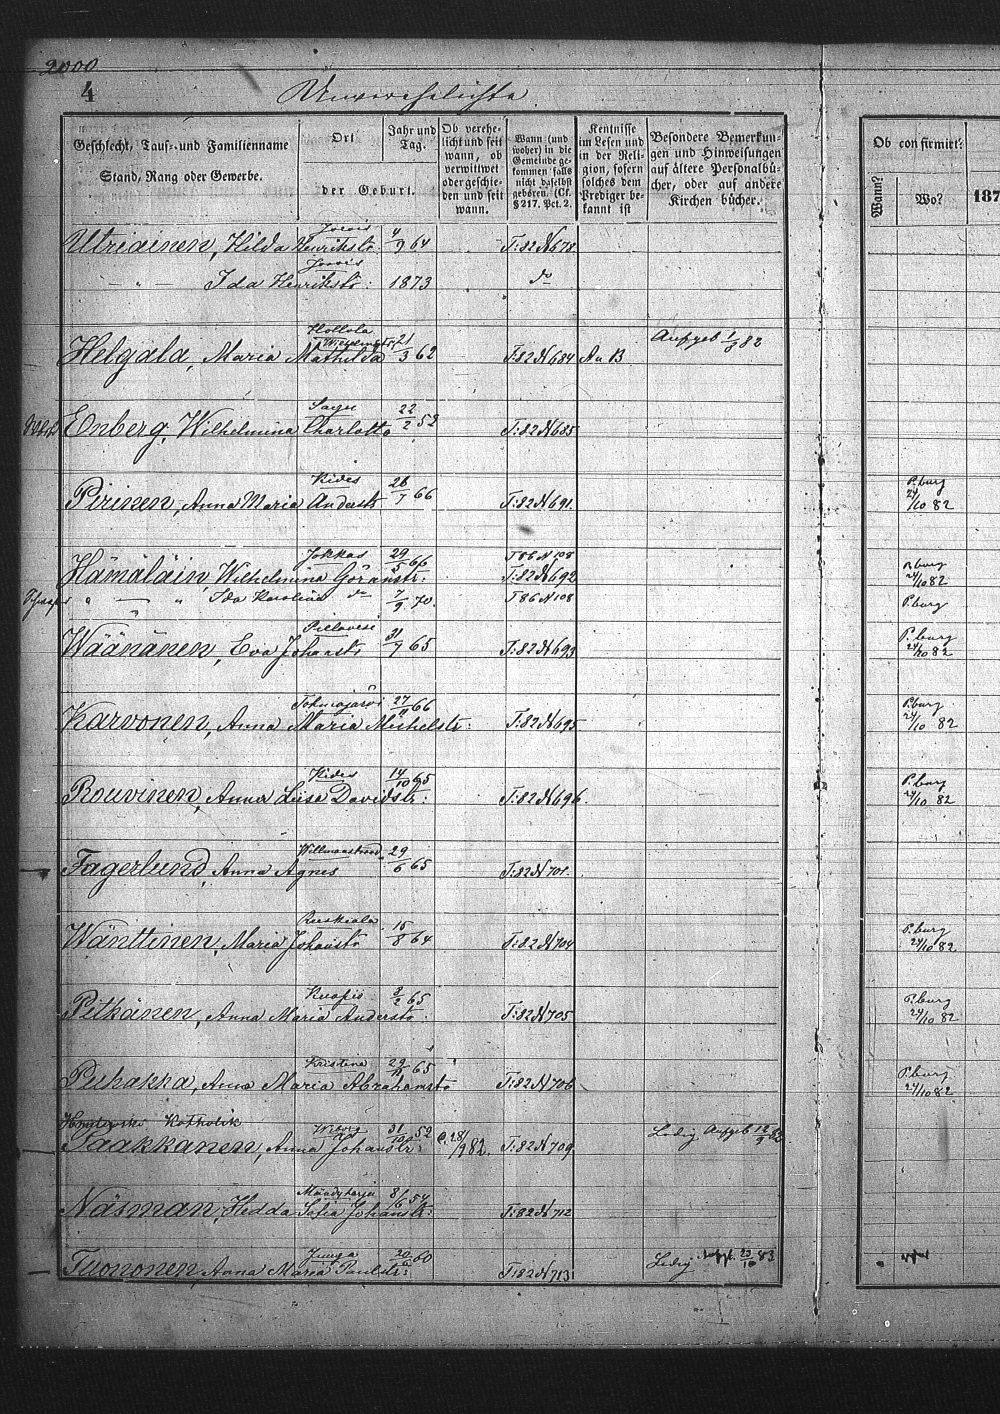 2000
4
Unverehelichte
Geschlecht, Tauf- und Familienname
Stand, Rang oder Gewerbe.
Ort
der Geburt.
Jahr und Tag.
Ob verehe-
licht und seit
wann, ob
verwittwet
oder geschie-
den und seit
wann.
Wann (und
woher) in die
Gemeinde ge-
kommen falls
nicht daselbst
geboren. (Cf.
§ 217. Pct. 2.
Kentnisse
im Lesen und
in der Reli-
gion, sofern
solches dem
Prediger be-
kannt ist
Besondere Bemerkun-
gen und Hinweisungen
auf ältere Personalbü-
cher, oder auf andere
Kirchen bücher.
Ob confirmirt:
Wann?
Wo?
187
Utriainen, Hilda Henrikstr: 4/9 64 T:82 N 678
— " — Ida Henrikstr: 1873 do
Hollola
Helgala, Maria Mathilda 21/3 62 T:82 N 684 A u B Aufgeb 1/8 82
Enberg, Wilhelmina Charlotta 22/2 52 T:82 N 685
Kides
Pirinen, Anna Maria Anderstr 26/7 66 T:82 N 691 P.burg 24/10 82
Jokkas T 86 N 108
Hämäläin, Wilhelmina Göranstr: 29/5 66 T:82 N 692 P.burg 24/10 82
" — " Ida Karolina do 7/9 70. T 86 N 108 P.burg
Pielavesi
Wäänänen, Eva Johanstr 31/7 65 T:82 N 693 P.burg 24/10 82
Tohmajärvi
Karvonen, Anna Maria Michelstr: 27/11 66 T:82 N 695 P.burg 24/10 82
Kides
Rouvinen, Anna Liisa Davidstr: 14/10 65 T:82 N 696. P.burg 24/10 82
Willmanstrand
Fagerlund, Anna Agnes 29/6 65 T:82 N 701.
Ruskiala
Wänttinen, Maria Johanstr 15/8 64 T:82 N 704 P.burg 24/10 82
Kuopio
Pitkänen, Anna Maria Anderstr. 2/2 65 T:82 N 705 P.burg 24/10 82
Kristina
Puhakka, Anna Maria Abrahamstr 29/11 65 T:82 N 706 P.burg 24/10 82
Katholik
Wiborg
Paakkanen, Anna Johanstr: 31/10 52 C. 28/9 82. T:82 N 709 Ledig Aufgeb 12/9 82
Mäntyharju
Näsman, Hedda Sofia Johanstr: 8/6 54 T:82 N 712
Tuononen, Anna Maria Paulstr: 20/6 60 T:82 N 713 Ledig 23/10 83